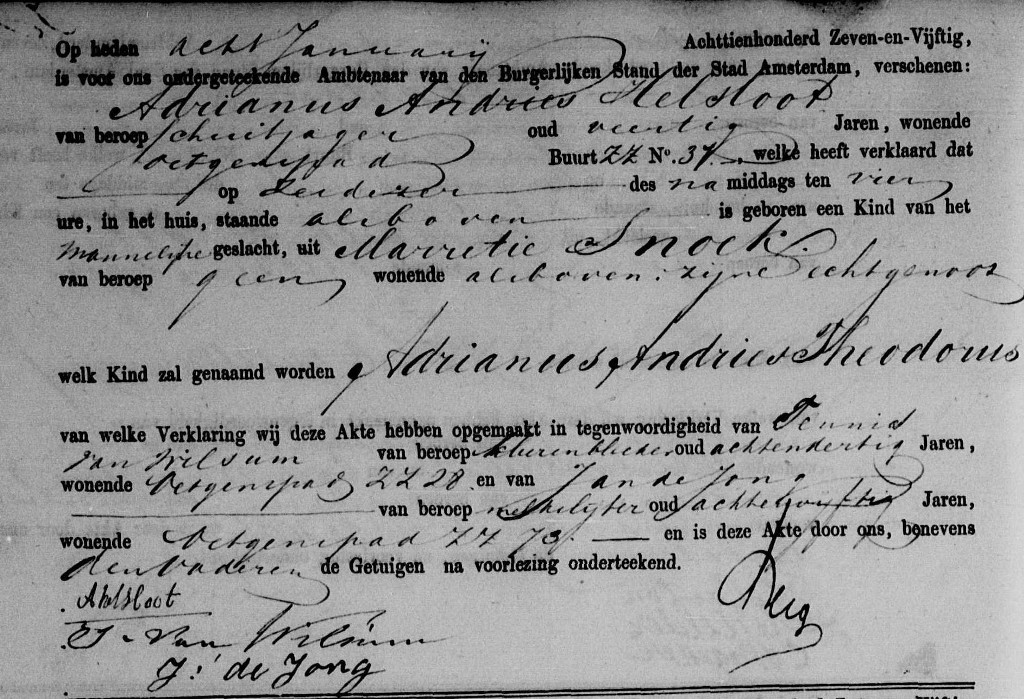 Op heden acht Januarij Achttienhonderd Zeven-en-Vijftig,
is voor ons ondergeteekende Ambtenaar van den Burgerlijken Stand der Stad Amsterdam, verschenen:
Adrianus Andries Helsloot
van beroep schuitjager oud veertig Jaren, wonende
Oetgenspad Buurt ZZ No. 37, welke heeft verklaard dat
op des na middags ten vier
ure, in het huis, staande als boven is geboren een Kind van het
Mannelijke geslacht, uit Marretje Snoek.
van beroep geen wonende als boven: zijne echtgenoot
welk Kind zal genaamd worden Adrianus Andries Theodorus
van welke Verklaring wij deze Akte hebben opgemaakt in tegenwoordigheid van Teunis
van Wilsum van beroep oud achtendertig Jaren,
wonende Oetgenspad ZZ 28. en van Jan de Jong
van beroep melkslijter oud achtenvijftig Jaren,
wonende Oetgenspad ZZ en is deze Akte door ons, benevens
den Vader en de Getuigen na voorlezing onderteekend.
AHelsloot
T. Van Wilsum
J. de Jong